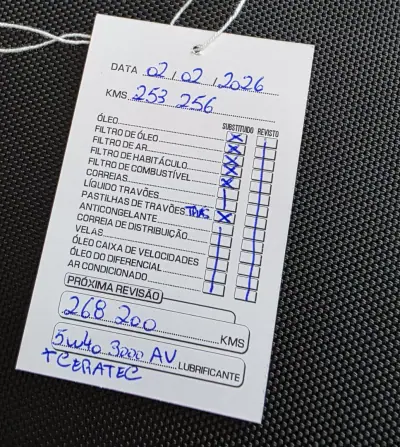 DATA 02 / 02 / 2026
KMS 253 256
SUBSTITUIDO REVISTO
ÓLEO
FILTRO DE ÓLEO
FILTRO DE AR
FILTRO DE HABITÁCULO
FILTRO DE COMBUSTÍVEL
CORREIAS
LÍQUIDO TRAVÕES
PASTILHAS DE TRAVÕES TRÁS
ANTICONGELANTE
CORREIA DE DISTRIBUIÇÃO
VELAS
ÓLEO CAIXA DE VELOCIDADES
ÓLEO DO DIFERENCIAL
AR CONDICIONADO
PRÓXIMA REVISÃO
268 200 KMS
5w40 3000 AV LUBRIFICANTE
+CERATEC